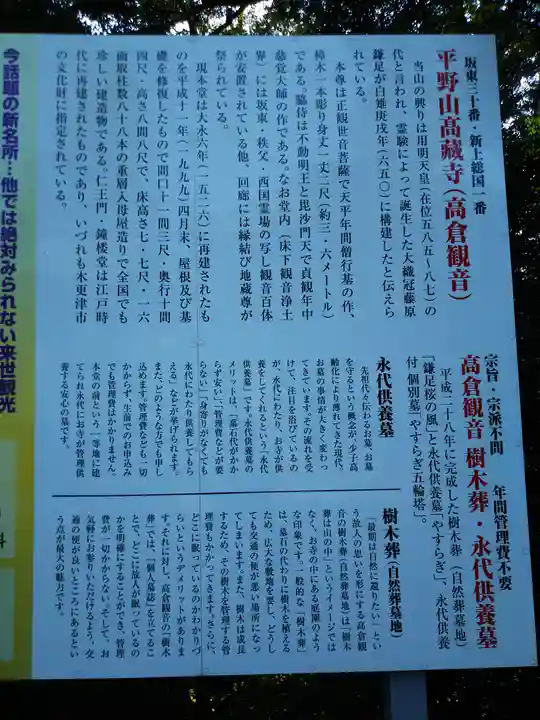 坂東三十番・新上総国一番
平野山高蔵寺(高倉観音)
当山の興りは用明天皇(在位五八五・八七)の
代と言われ、霊験によって誕生した大織冠藤原
鎌足が白雉庚戌年(六五〇)に構建したと伝えら
れている。
本尊は正観世音菩薩で天平年間僧行基の作、
樟木一本彫り身丈一丈二尺(約三・六メートル)
である。脇侍は不動明王と毘沙門天で貞観年中
慈覚大師の作である。なお堂内(床下観音浄土
界)には坂東・秩父・西国霊場の写し観音百体
が安置されている他、回廊には縁結び地蔵尊が
祭られている。
現本堂は大永六年(一五二六)に再建されたも
のを平成十一年(一九九九)四月末、屋根及び基
礎を修復したもので間口十一間三尺・奥行十間
四尺・高さ八間八尺で、床高さ七・七尺・一六
面取柱数八十八本の重層入母屋造りで全国でも
珍しい建造物である。仁王門・鐘楼堂は江戸時
代に再建されたものであり、いづれも木更津市
の文化財に指定されている。
宗旨・宗派不問 年間管理費不要
高倉観音 樹木葬・永代供養墓
平成二十八年に完成した樹木葬(自然葬墓地)
「鎌足桜の風」と永代供養墓「やすらぎ」、永代供養
付 個別墓「やすらぎ五輪塔」。
永代供養墓
先祖代々伝わるお墓。お墓
を守るという概念が、少子高
齢化により薄れてきた現代。
お墓の事情が大きく変わっ
てきています。その流れを受
けて、注目を浴びているの
が、永代にわたり、お寺が供
養をしてくれるという「永代
供養墓」です。永代供養墓の
メリットは、「墓石代がかか
らず安い」「管理費などが要
らない」「身寄りがなくても
永代にわたり供養してもら
える」などが挙げられます。
また、どのような方でも申し
込めます。管理費なども一切
かからず、生前でのお申込み
でも管理費はかかりません。
本堂の前という一等地に建
てられ永代にお寺が管理供
養する安心の墓です。
樹木葬(自然葬墓地)
「最期は自然に還りたい」とい
う故人の思いを形にする高倉観
音の樹木葬(自然葬墓地)は「樹木
葬は山の中」というイメージでは
なく、お寺の中にある庭園のよう
な印象です。一般的な「樹木葬」
は、墓石の代わりに樹木を植える
ため、広大な敷地を要し、どうし
ても交通の便が悪い場所になっ
てしまいます。また、樹木は成長
するため、その樹木を管理する管
理費もかかってきます。さらに、
どこに眠っているのかわかりづ
らいというデメリットがありま
す。それに対し、高倉観音の「樹木
葬」では、「個人墓誌」を立てるこ
とで、どこに故人が眠っているの
かを明確にすることができ、管理
費が一切かからない。そして、お
気軽にお参りいただけるよう、交
通の便が良いところにあるとい
う点が最大の魅力です。
今話題の新名所…他では絶対みられない来世観光